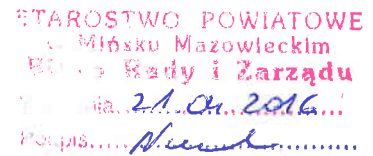 STAROSTWO POWIATOWE
w Mińsku Mazowieckim
Biuro Rady i Zarządu
dnia 21.01.2016
Podpis